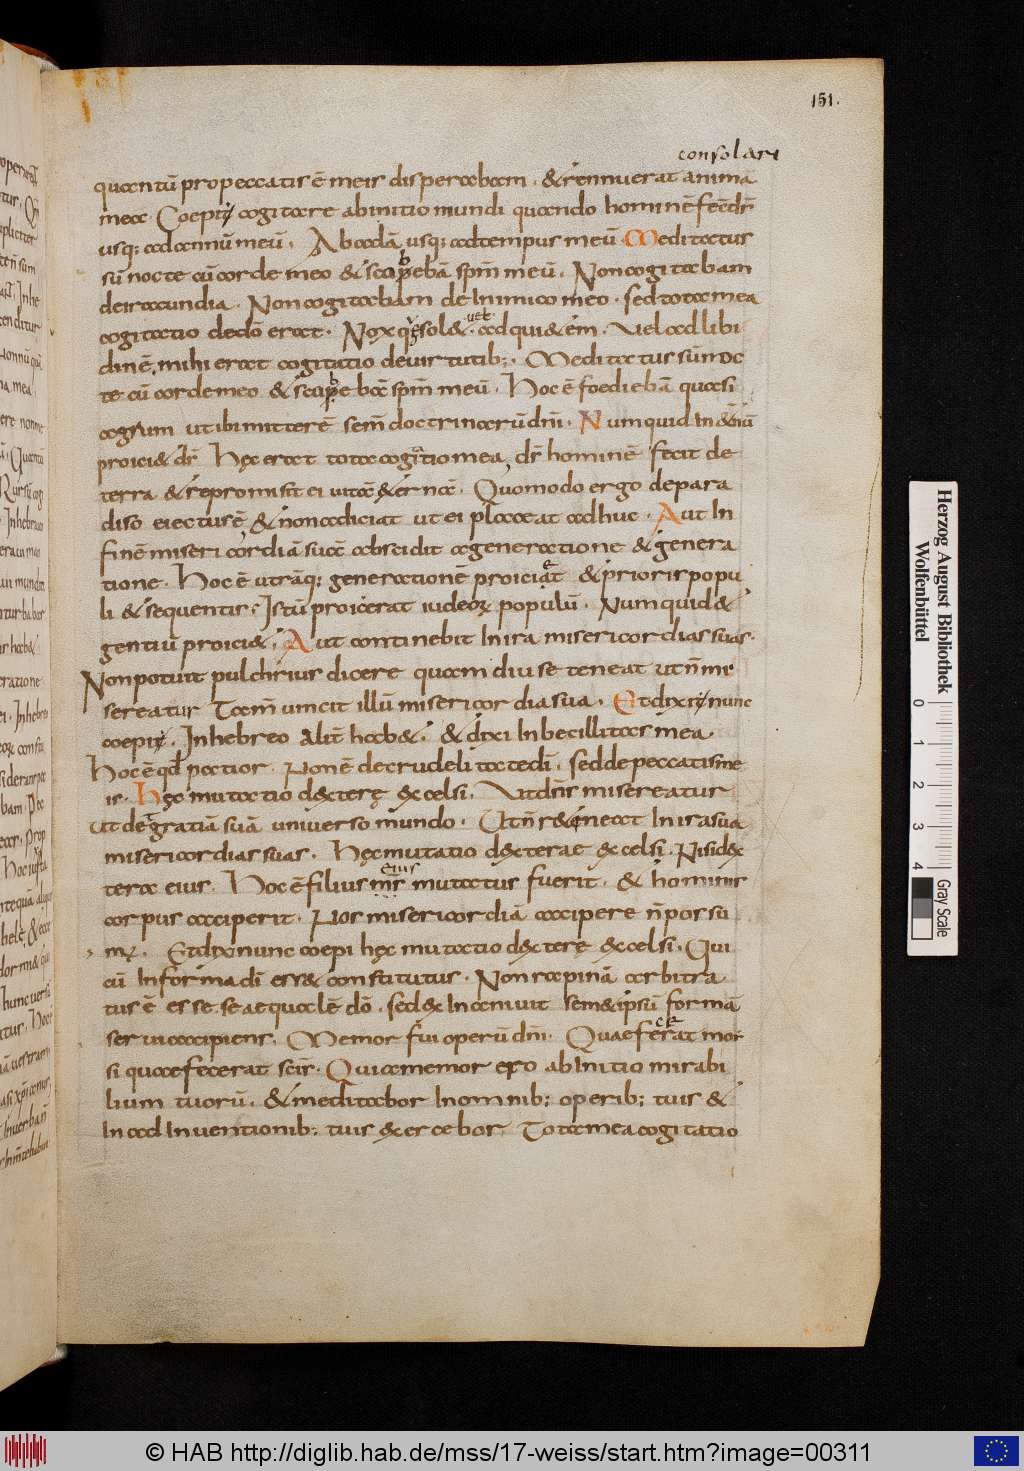 151.
consolari
quantū propeccatis ē meis disperabam · & rennuerat animā
meā Coepit cogitare abinitio mundi quando hominē fecit ds̄
usq; adannū meū · Abadā usq; adtempus meū Meditatus
sū nocte cū corde meo & scopebā spm̄ meū · Noncogitabam
deiracundia · Noncogitabam deInimico meo · sed totamea
cogitatio dedō erat · Nox quę sol& · ad qui&ēm · Vel adlibi
dinē, mihi erat cogitatio deuirtutib; · Meditatus sū noc
te cū cordemeo & scopebā spm̄ meū · Hoc ē foediebā quasi
agrum ut ibi mitterē sem̄ doctrinarū dnī · Numquid In &nū
proici& ds̄ Hęc erat tota cogitatio mea, ds̄ hominē fecit de
terra & repromisit ei uitā &ernā · Quomodo ergo depara
diso eiectus ē, & nonadiciat ut ei placeat adhuc · Aut In
finē misericordiā suā abscidit ageneratione & genera
tione · Hoc ē utrāq; generationē proiciat & prioris popu
li & sequentis · Istū proicerat iudeoꝝ populū · Numquid &
gentiū proici& · Aut continebit Inira misericordias suas ·
Nonpotuit pulchrius dicere quam diu se teneat ut n̄ mi
sereatur Tam̄ uincit illū misericordia sua · Et dixi nunc
coepi · Inhebreo alit̄ hab& · & dixi Inbecillitas mea
Hoc ē qđ patior · Non ē decrudelitate dī · sed de peccatis me
is · Hęc mutatio dextere excelsi · Ut ds̄ misereatur
Ut de gratiā suā uniuerso mundo · Ut n̄ r&ineat Inira sua
misericordias suas · Hęc mutatio dexterae excelsi · Nisi dex
tera eius · Hoc ē filius eius mutatus fuerit · & hominis
corpus acciperit · Nos misericordiā accipere n̄ possu
mꝰ · Et dixi nunc coepi hęc mutatio dextere excelsi · Qui
cū Informa dī ess& constitutus · Non rapinā arbitra
tus ē esse se aequalē dō · sed exInaniuit sem&ipsū formā
serui accipiens · Memor fui operū dnī · Quae fecerat moy
si quae fecerat scīs · Quia memor ero abInitio mirabi
lium tuorū · & meditabor Inomnib; operib; tuis &
In adInuentionib; tuis exercebor · Tota mea cogitatio
Herzog August Bibliothek
Wolfenbüttel
0 1 2 3 4
Gray Scale
© HAB http://diglib.hab.de/mss/17-weiss/start.htm?image=00311